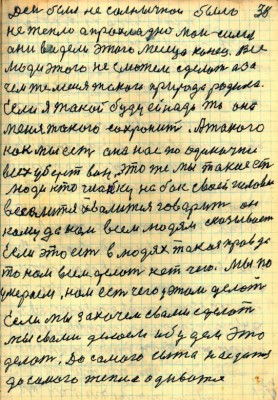 Ден был не солнычной было 38
не тепло а прохладно мои силы
они видем этого месца конец. Все
люди этого не сможем сделат а за
чем же меня такого природа родила.
Если я такой буду ей надь то она
меня такого сохронит. А такого
как мы ест она нас по одиначки
всех уберт вон, это же мы такие ест
люди кто шапку на бок своей голови
всео говорит он
кому да нам всем людям сказывает
Если это ест в людях такая правда
то нам всем делат нет чего. Мы по
умераем, нам ест чего этом делат
Если мы захочем с вами сделат
мы с вами делаем и будем это
делат, До самого сыта наедатя
до самого тепла одыватя